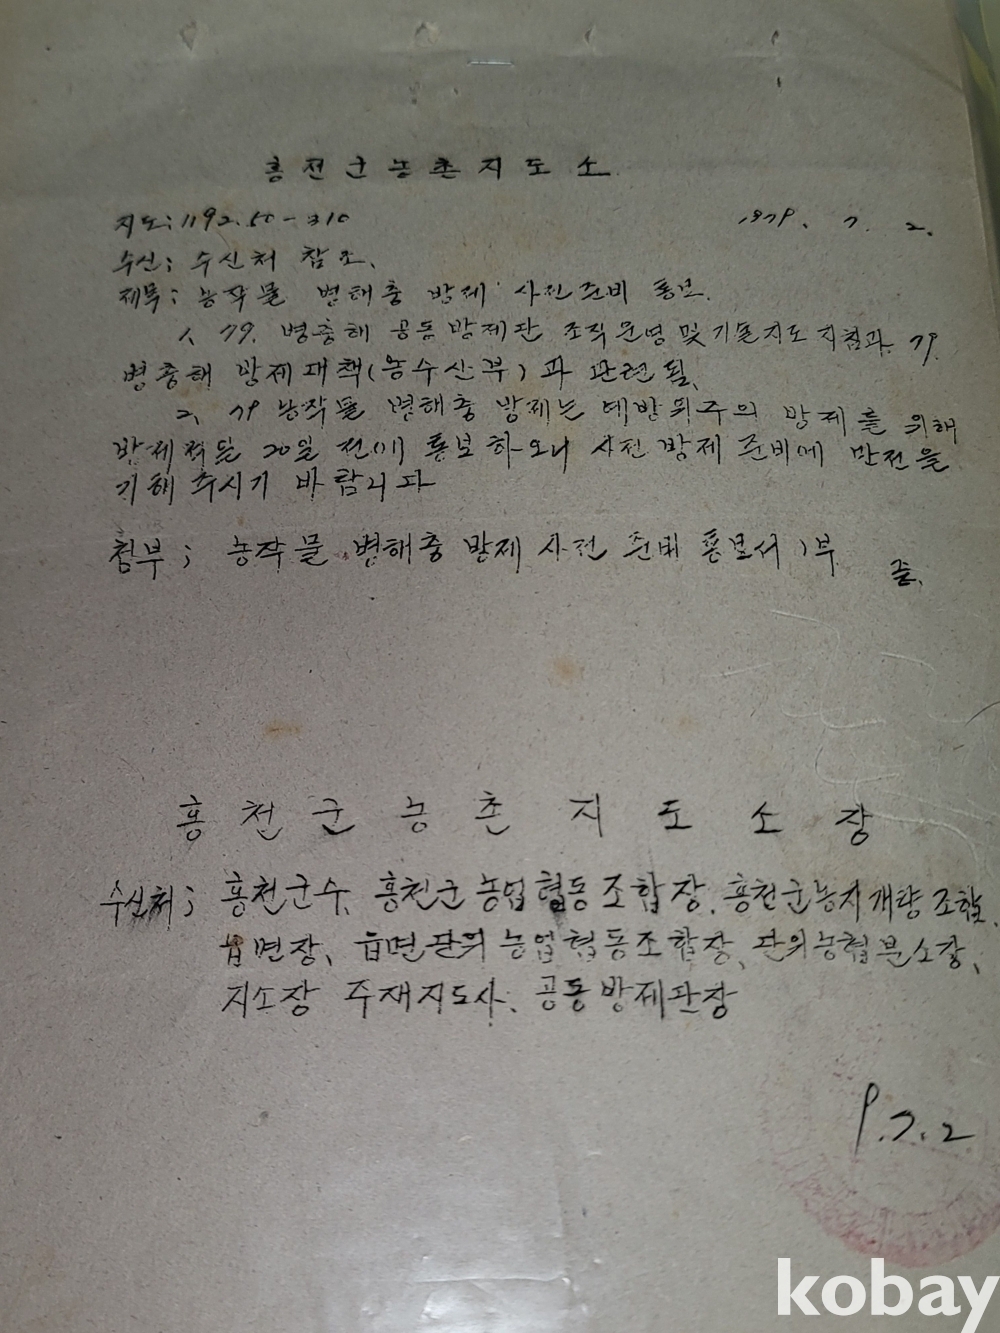 홍천군농촌지도소
지도: 1192.50-310 1979. 7. 2.
수신; 수신처 참조.
제목; 농작물 병해충 방제 사전준비 통보.
1. 79. 병충해 공동방제단 조직운영 및 기술지도 지침과 79.
병충해 방제대책(농수산부)과 관련됨.
2. 79 농작물 병해충 방제는 예방위주의 방제를 위해
방제적일 20일 전에 통보하오니 사전 방제 준비에 만전을
기해 주시기 바랍니다
첨부; 농작물 병해충 방제 사전 준비 통보서 1부 끝.
홍천군농촌지도소장
수신처; 홍천군수, 홍천군 농업협동조합장. 홍천군농지개량조합,
읍면장, 읍면단위 농업협동조합장, 단위농협분소장,
지소장 주재지도사. 공동방제단장
9.7.2
kobay